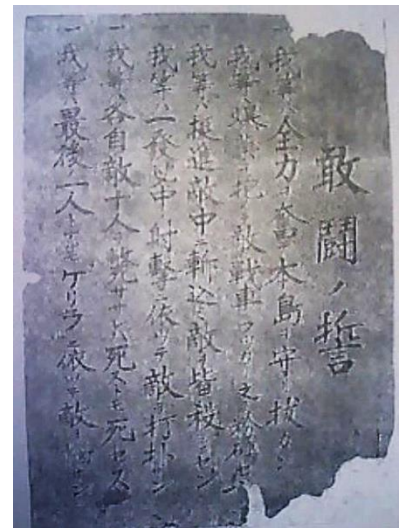 敢闘ノ誓
我等ハ全力ヲ奮テ本島ヲ守リ抜カン
我等ハ爆薬ヲ抱テ敵戦車ニブツカリ之ヲ粉砕セン
一我等ハ挺進敵中ニ斬込ミ敵ヲ皆殺シニセン
一我等ハ一發必中ノ射撃ニ依ツテ敵ヲ打仆サン
一我等ハ各自敵十人ヲ斃サザレバ死ストモ死セズ
一我等ハ最後ノ一人トナルモゲリラニ依ツテ敵ヲ